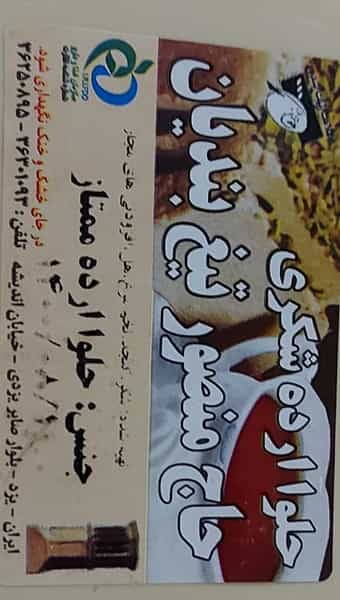 حلوا ارده شکری
حاج منصور تیغ بندیان
تهیه شده از: شکر، کنجد، تخم مرغ، هل، افزودنی های مجاز
جنس: حلوا ارده ممتاز
در جای خشک و خنک نگهداری شود.
ایران - یزد - بلوار صابر یزدی - خیابان اندیشه تلفن: ۳۶۳۰۱۰۹۳ - ۳۶۲۵۰۸۹۵